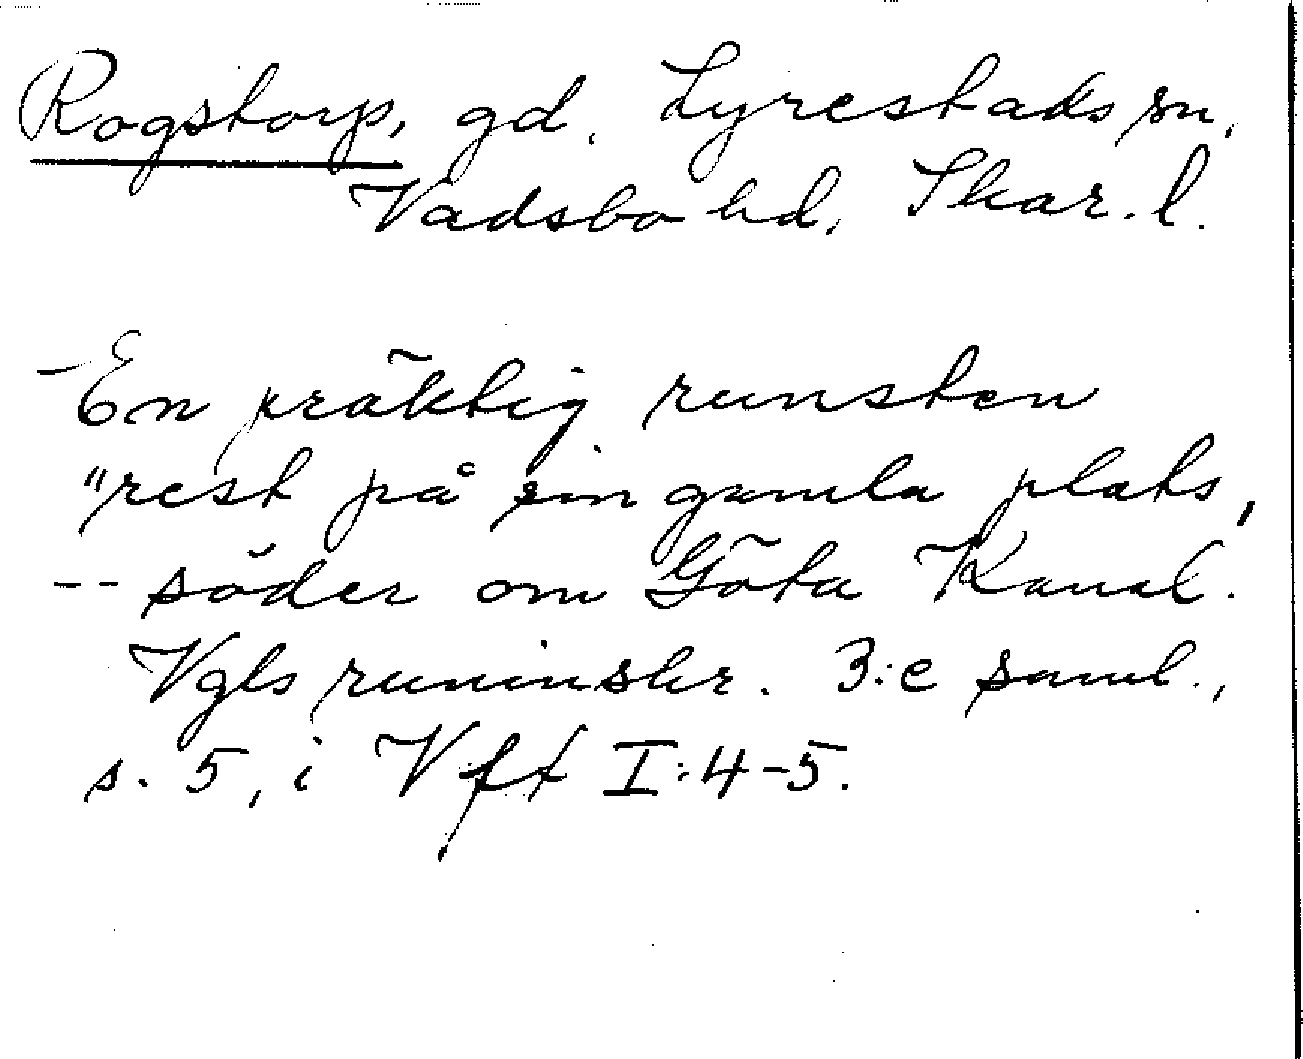 Rogstorp, gd. Lyrestads sn,
Vadsbo hd, Skar. l.
En präktig runsten
"rest på sin gamla plats,
-- söder om Göta Kanal.
Vgls runinskr. 3:e saml.,
s. 5, i Vft I:4-5.